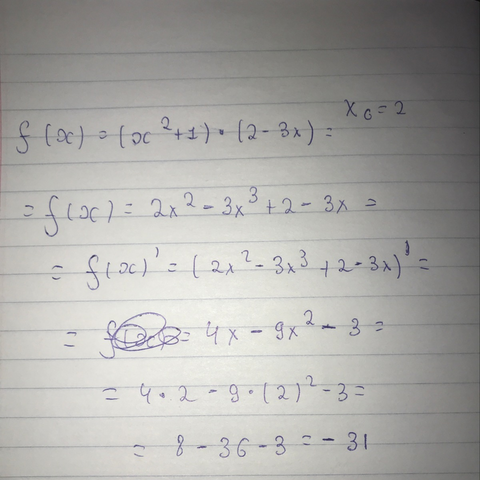 x₀ = 2
f(x) = (x² + 1) · (2 - 3x) =
= f(x) = 2x² - 3x³ + 2 - 3x =
= f(x)' = (2x² - 3x³ + 2 - 3x)' =
= = 4x - 9x² - 3 =
= 4 · 2 - 9 · (2)² - 3 =
= 8 - 36 - 3 = - 31